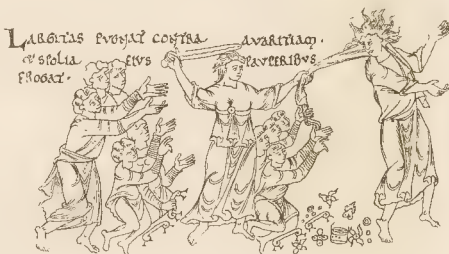 LARGITAS PVGNAT CONTRA AVARITIAM·
& SPOLIA EIVS PAVPERIBVS
EROGAT·